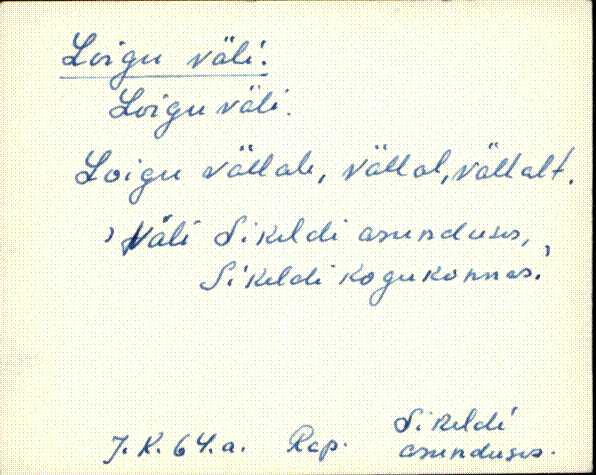 Loigu väli.
Loigu väli.
Loigu vällale, vällal, vällalt.
, Väli Sikeldi asunduses,
Sikeldi kogukonnas.’
J. K. 64. a. Rap. Sikeldi
asunduses.